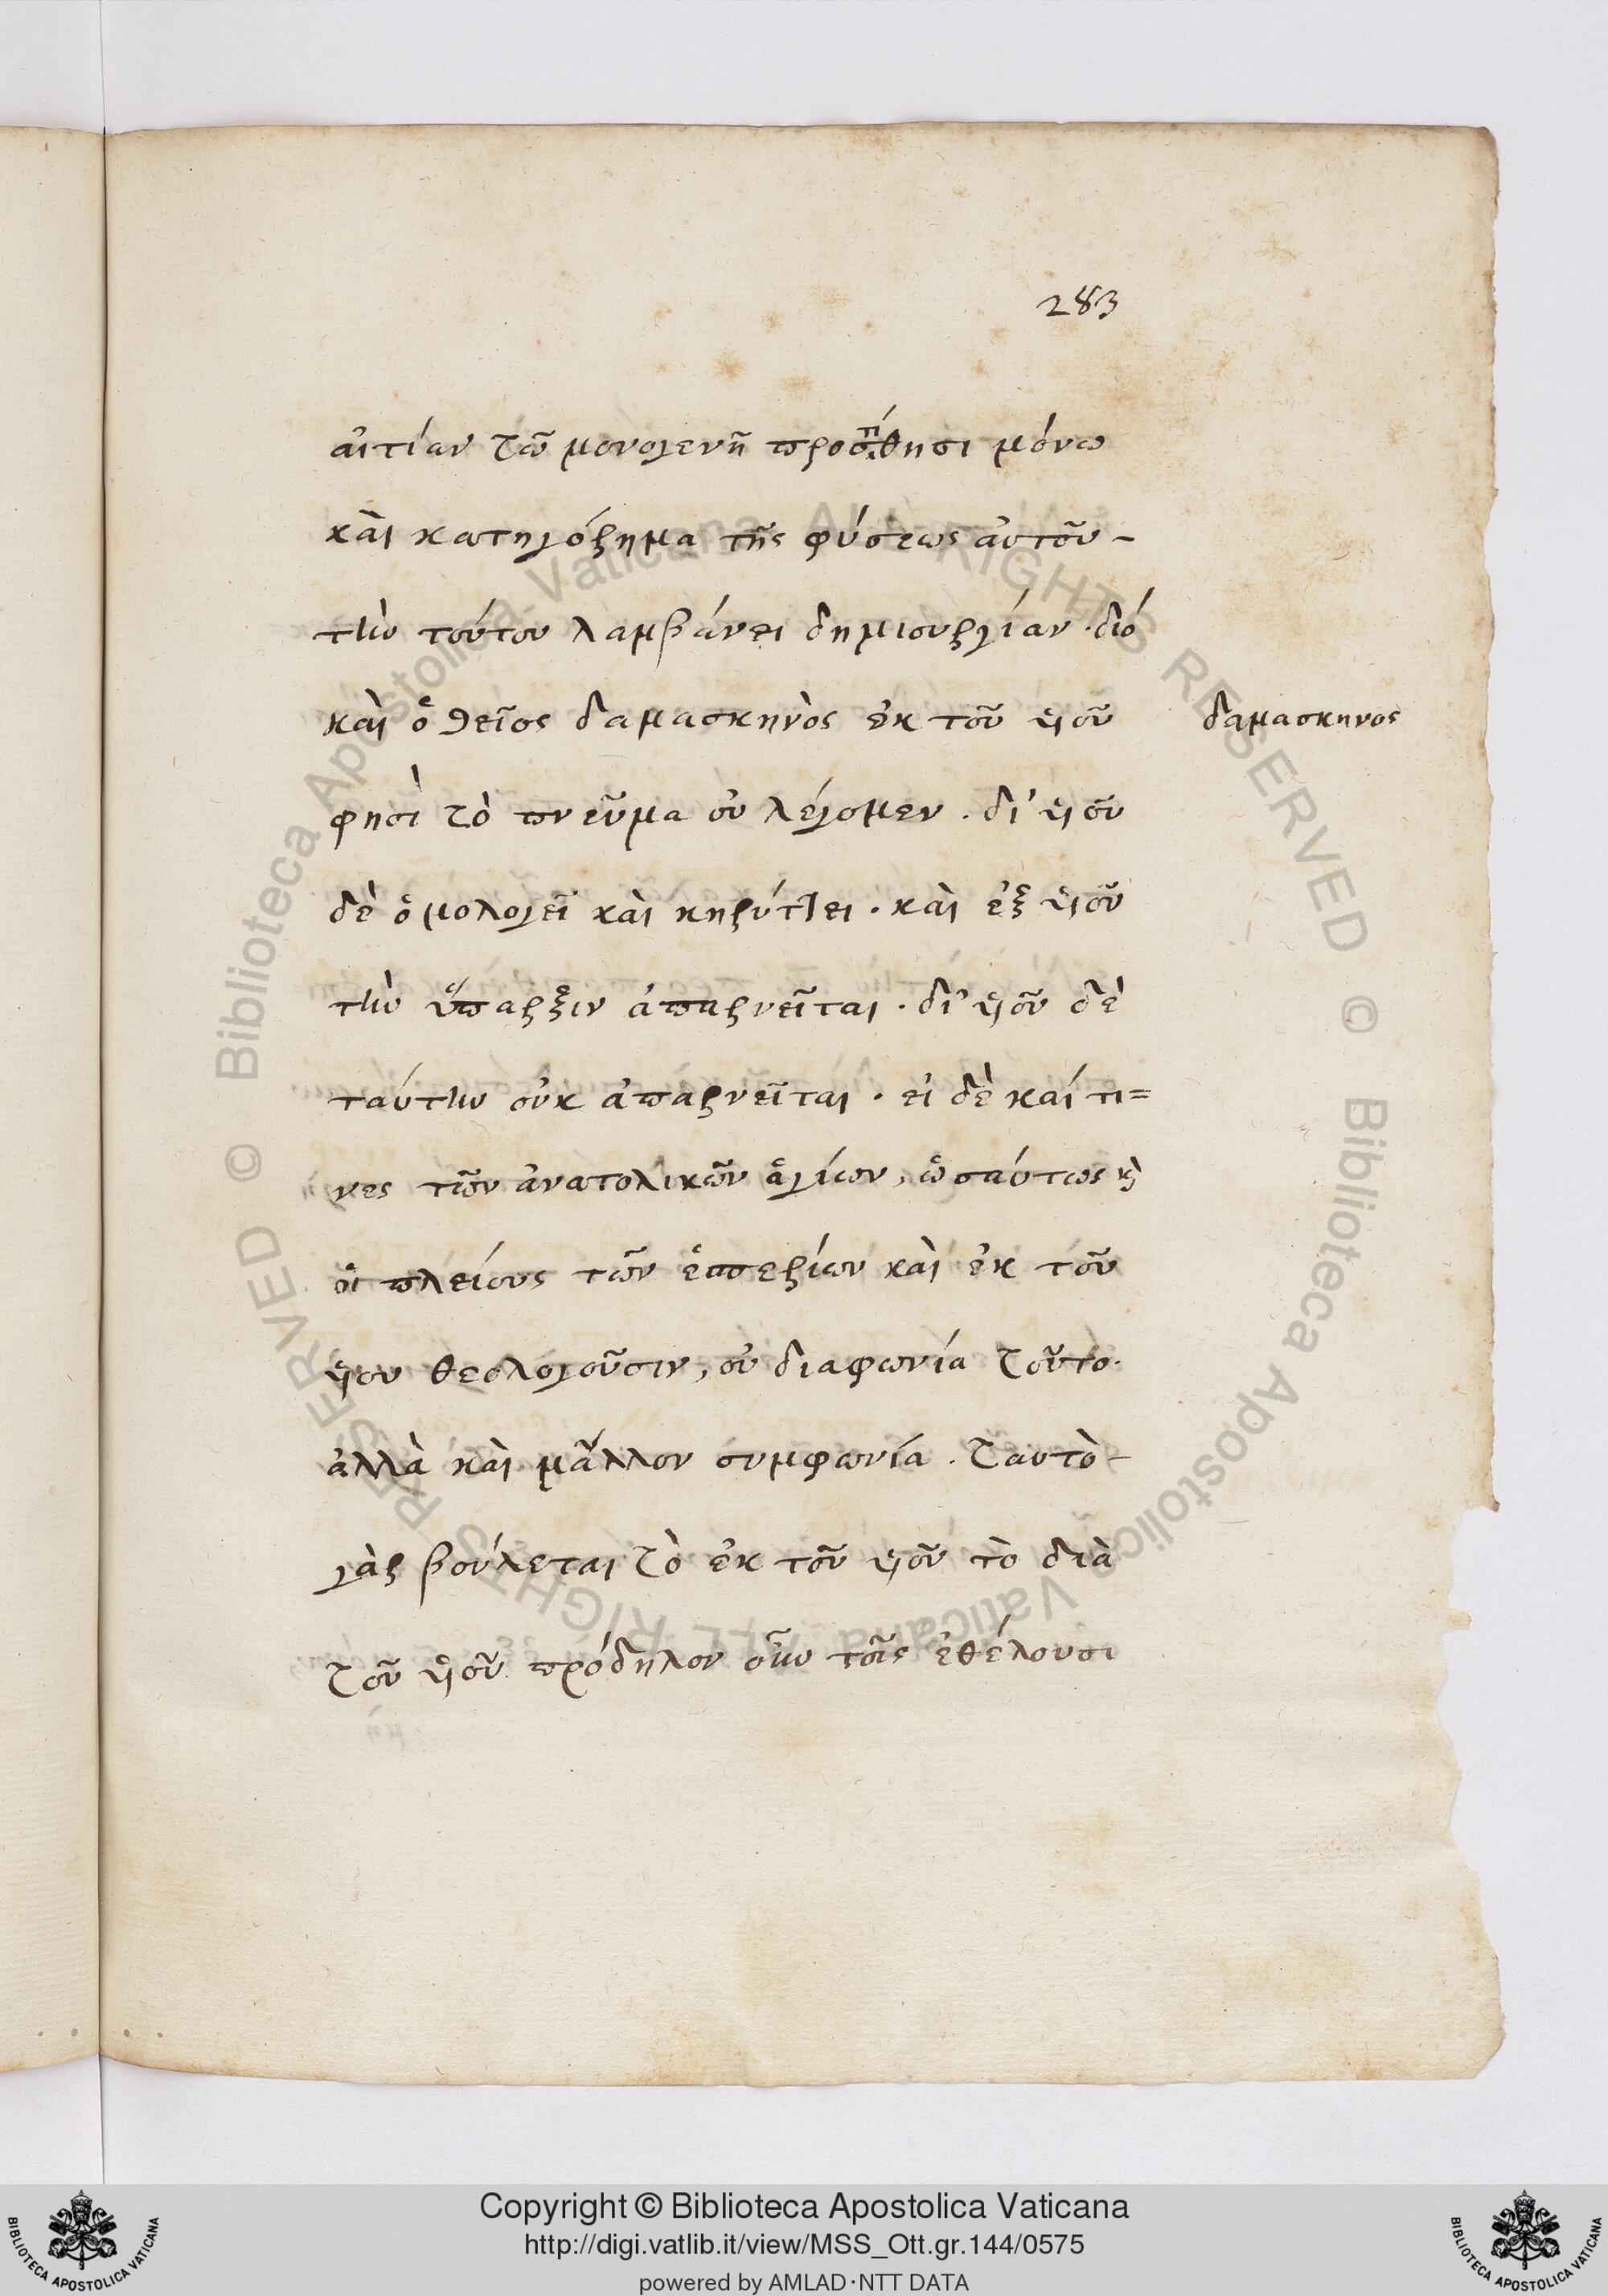 283
αἰτίαν τῶ μονογενῆ προστίθησι μόνω
καὶ κατηγόρημα τῆς φύσεως αὐτοῦ -
τὴν τούτου λαμβάνει δημιουργίαν · διό
καὶ ὁ θεῖος δαμασκηνὸς ἐκ τοῦ ὑιοῦ
δαμασκηνος
φησὶ τὸ πνεῦμα οὐ λέγομεν . δι' ὑιοῦ
δὲ ὁμολογεῖ καὶ κηρύττει · καὶ ἐξ ὑιοῦ
τὴν ὕπαρξιν ἀπαρνεῖται · δι' ὑιοῦ δὲ
ταύτην οὐκ ἀπαρνεῖται · εἰ δὲ καί τι=
νες τῶν ἀνατολικῶν ἁγίων, ὡσαύτως κὶ
οἱ πλείους τῶν ἑσπερίων καὶ ἐκ τοῦ
ὑιου θεολογοῦσιν, οὐ διαφωνία τοῦτο·
ἀλλὰ καὶ μᾶλλον συμφωνία . ταυτὸ -
γὰρ βούλεται τὸ ἐκ τοῦ ὑιοῦ τὸ διὰ
τοῦ ὑιοῦ. πρόδηλον οὖν τοῖς ἐθέλουσι
Copyright © Biblioteca Apostolica Vaticana
http://digi.vatlib.it/view/MSS_Ott.gr.144/0575
powered by AMLAD·NTT DATA
BIBLIOTECA APOSTOLICA VATICANA
BIBLIOTECA APOSTOLICA VATICANA
© Biblioteca Apostolica Vaticana ALL RIGHTS RESERVED
© Biblioteca Apostolica Vaticana ALL RIGHTS RESERVED